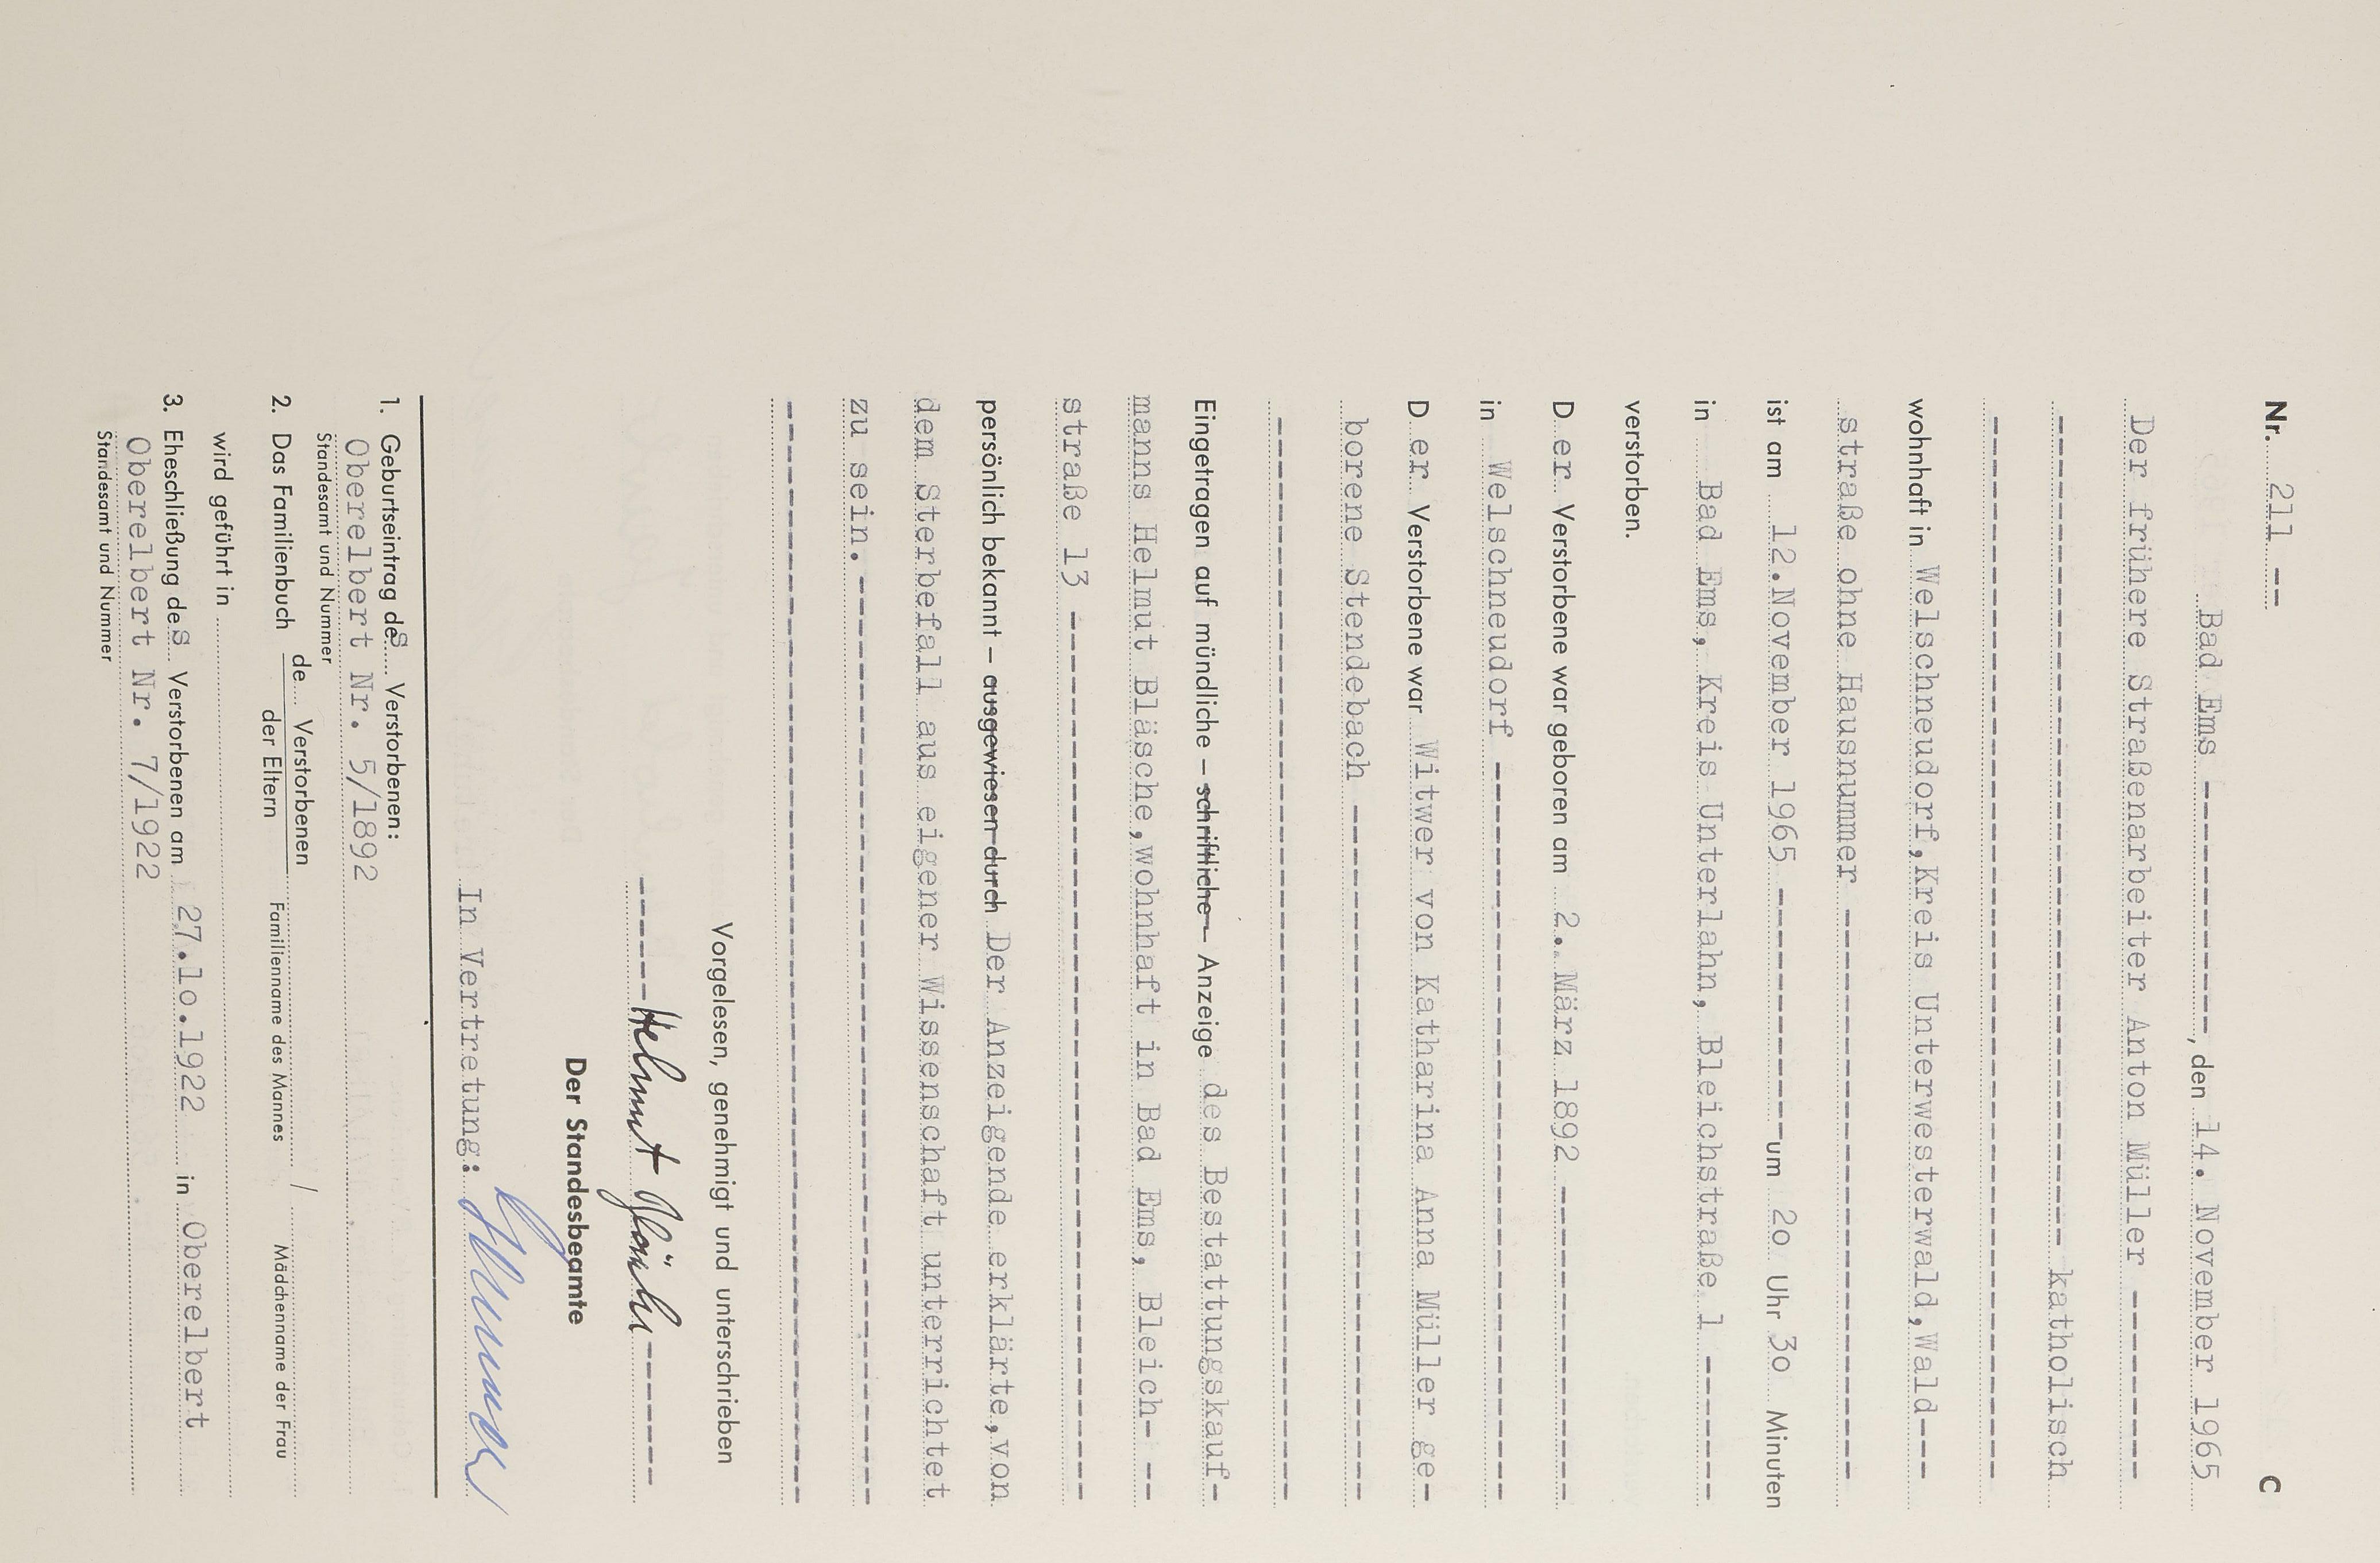 Nr. 211 -- C
Bad Ems ----------------, den 14. November 1965
Der frühere Straßenarbeiter Anton Müller --------
---------------------------------------- katholisch
wohnhaft in Welschneudorf,Kreis Unterwesterwald,Wald---
straße ohne Hausnummer --------------------------------
ist am 12.November 1965 ---------------um 2o Uhr 3o Minuten
in Bad Ems, Kreis Unterlahn, Bleichstraße 1 --------
verstorben.
D er Verstorbene war geboren am 2. März 1892 ----------------
in Welschneudorf ----------------------------------------
D er Verstorbene war Witwer von Katharina Anna Müller ge-
borene Stendebach ----------------------------------------
Eingetragen auf mündliche – schriftliche – Anzeige des Bestattungskauf-
manns Helmut Bläsche,wohnhaft in Bad Ems, Bleich- --
straße 13 ------------------------------------------------
persönlich bekannt – ausgewiesen durch Der Anzeigende erklärte,von
dem Sterbefall aus eigener Wissenschaft unterrichtet
zu sein. ------------------------------------------------
Vorgelesen, genehmigt und unterschrieben
--------Helmut Bläsche--------
Der Standesbeamte
In Vertretung:
1. Geburtseintrag des Verstorbenen:
Oberelbert Nr. 5/1892
Standesamt und Nummer
2. Das Familienbuch de Verstorbenen / der Eltern
Familienname des Mannes / Mädchenname der Frau
wird geführt in
3. Eheschließung des Verstorbenen am 27.1o.1922 in Oberelbert
Oberelbert Nr. 7/1922
Standesamt und Nummer